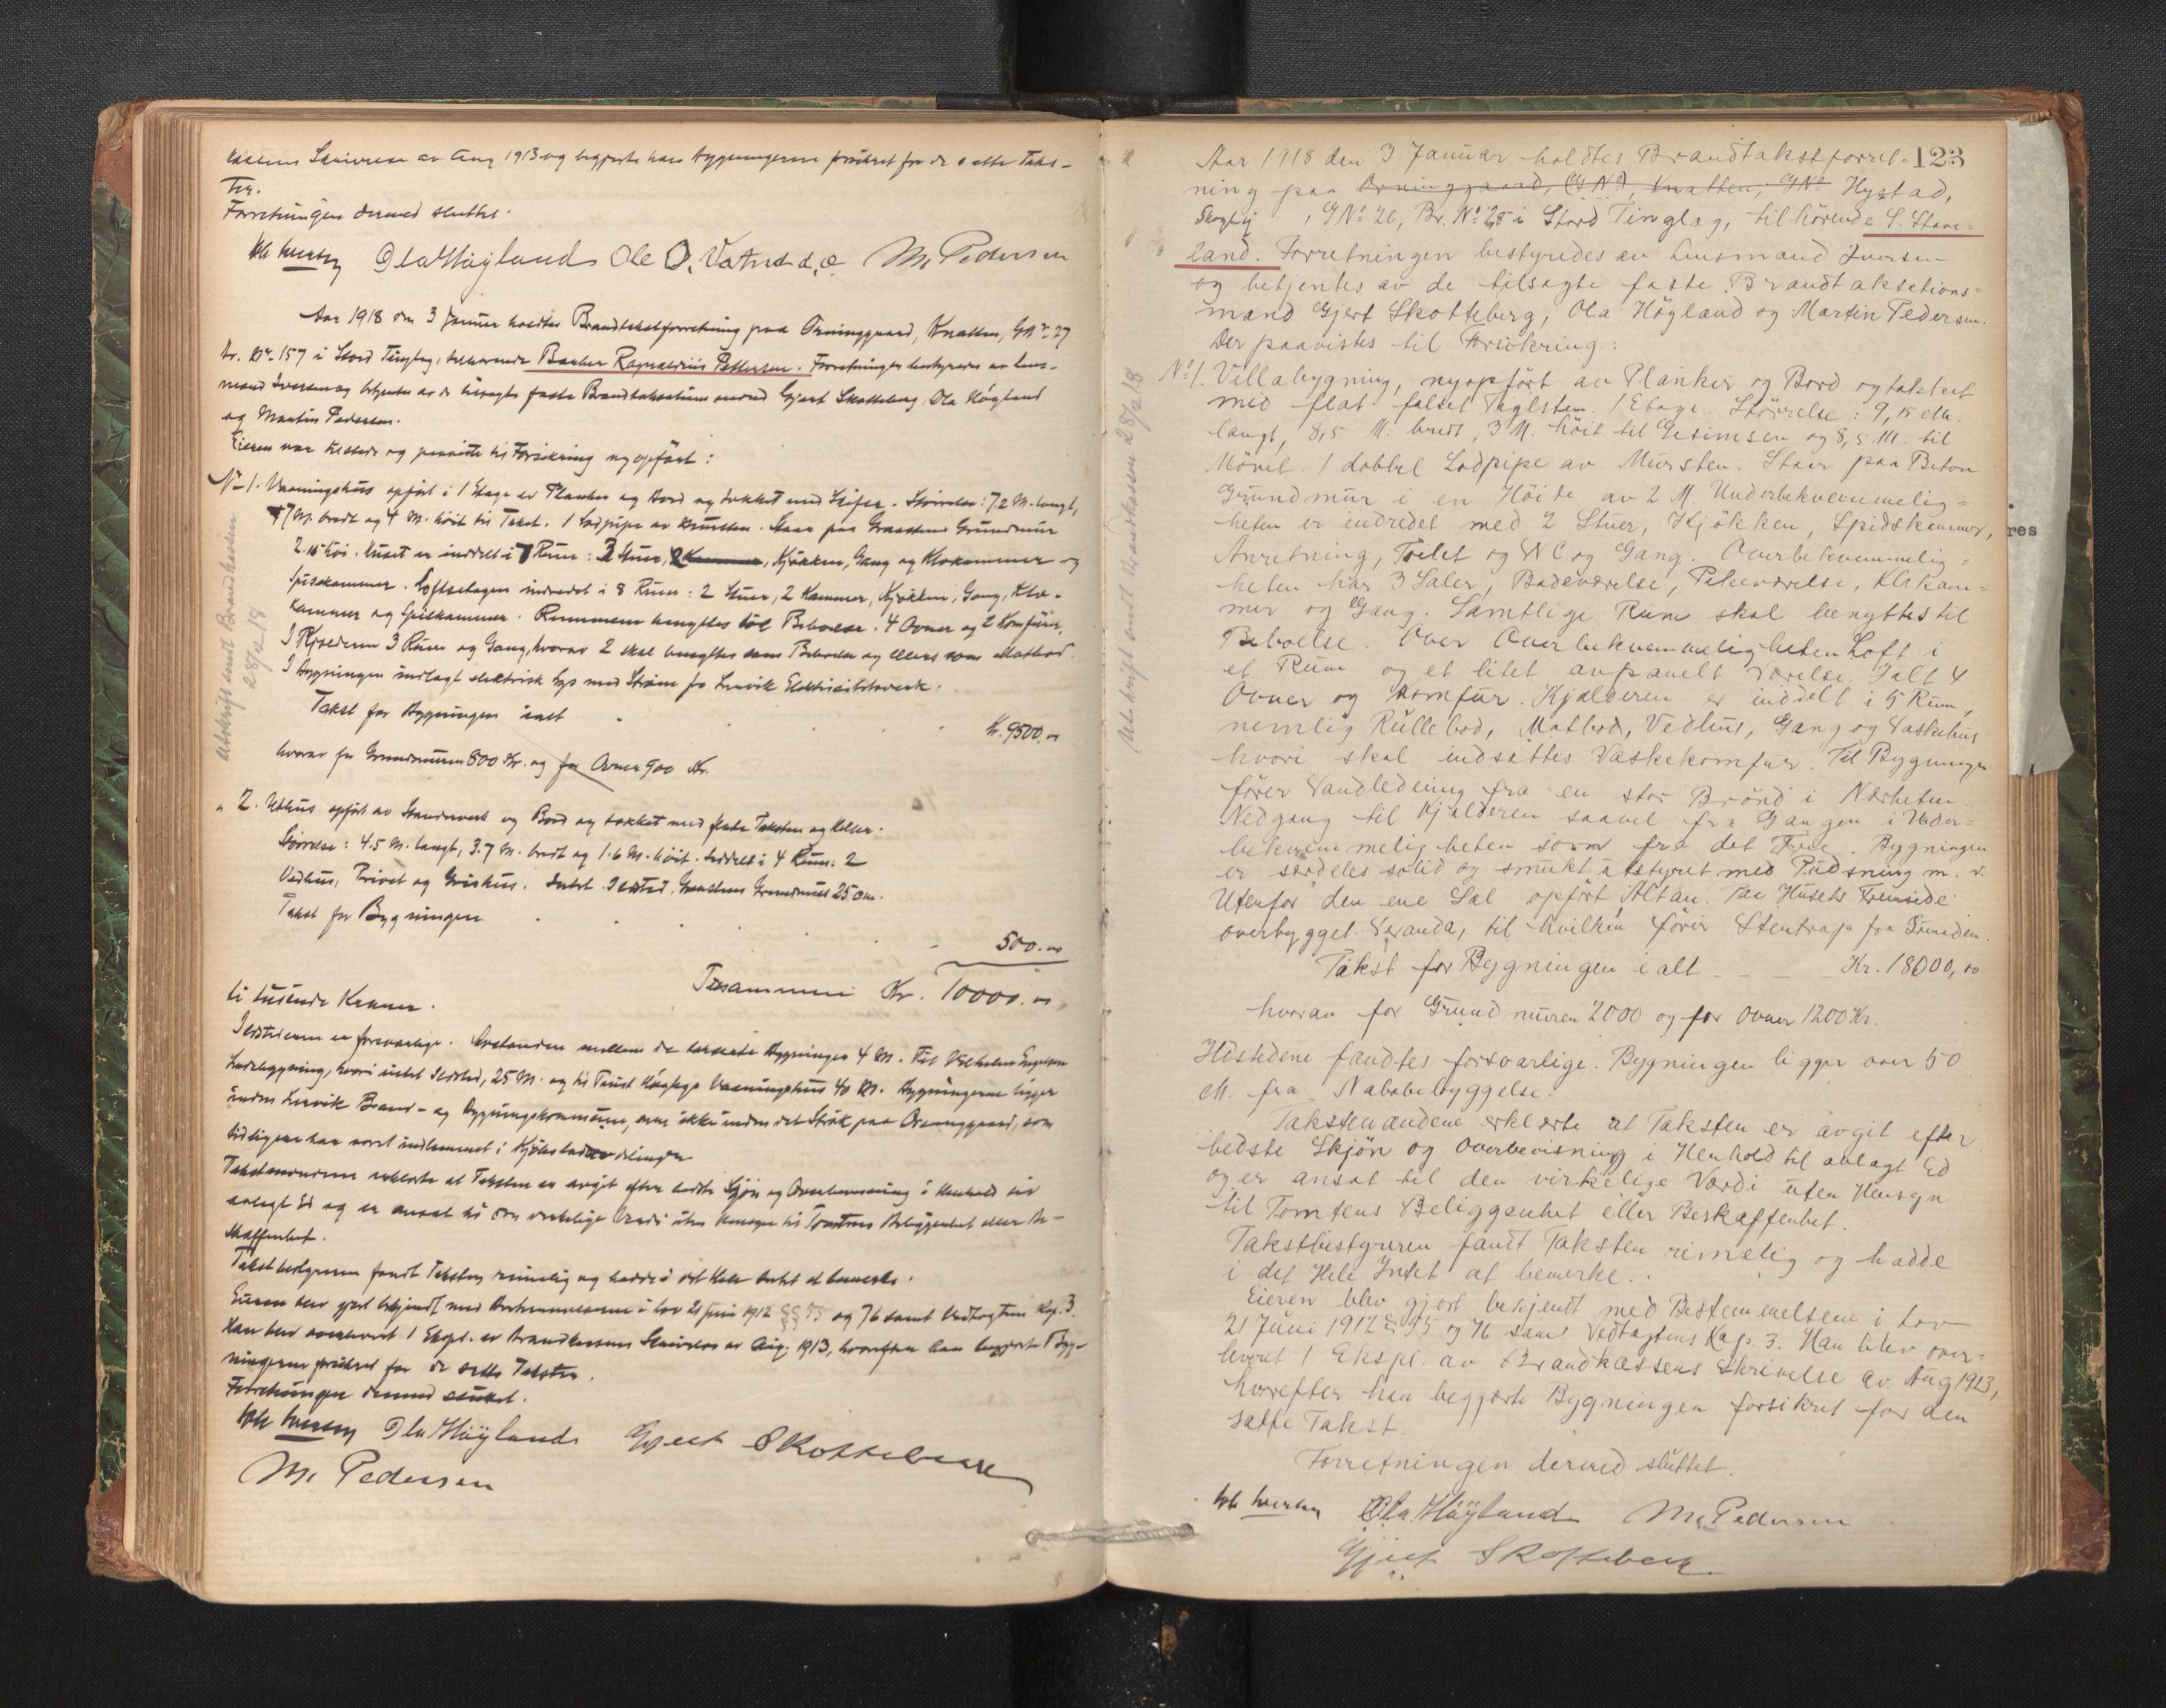 kassens Skrivelse av Aug 1913 og begjærte han Bygningerne forsikret for de satte Taks-
ter.
Forretningen dermed sluttet.
Ola Høyland Ole O. Vatna d.e. M. Pedersen
Aar 1918 den 3 Januar holdtes Brandtakstforretning paa Orninggaard, Knatten, GNr. 27
Br. Nr. 157 i Stord Tinglag, tilhørende Banker Ragnaldius Pettersen. Forretningen bestyredes av Lens-
mand Iversen og betjentes av de tilsagte faste Brandtakstations mænd Gjert Skotteberg, Ola Høyland
og Martin Pedersen.
Eieren var tilstede og paaviste til Forsikring nyopført:
No 1. Vaaningshus opført i 1 Etage av Planker og Bord og tækket med Skifer. Størrelse: 7,2 M. langt,
7 M. bredt og 4 M. høit til Taket. 1 Lodpipe av Mursten. Staar paa Graastens Grundmur
2.15 høi. Huset er inddelt i 7 Rum: 3 Stuer, Kjøkken, Gang og Klokammer og
Spisekammer. Loftsetagen indredet i 8 Rum: 2 Stuer, 2 Kammer, Kjøkken, Gang, Klo-
kammer og Spisekammer. Rummene benyttes til Beboelse. 4 Ovner og 2 Komfürer.
I Kjælderen 3 Rum og Gang, hvorav 2 skal benyttes som Beboelse og ellers som Matbod.
I Bygningen indlagt elektrisk Lys med Strøm fra Leirvik Elektricitetsverk.
Takst for Bygningen ialt Kr. 9500.00
hvorav for Grundmuren 800 Kr. og for Ovner 900 Kr.
" 2. Uthus opført av Stenderverk og Bord og tækket med flate Taksten og Heller.
Størrelse: 4.5 M. langt, 3.7 M. bredt og 1.6 M. høit. Inddelt i 4 Rum: 2
Vedhus, Privet og Grishus. Intet Ildsted. Graastens Grundmur 25 cm.
Takst for Bygningen 500.00
Tilsammen Kr. 10000.00
ti tusende Kroner.
Ildstederne er forsvarlige. Avstanden mellem de takserte Bygninger 4 M. Til Vilhelm
Ladebygning, hvori intet Ildsted, 25 M. og til Vaaningshus 40 M. Bygningerne ligger
inden Leirvik Brand- og Bygningskommune, men ikke inden det Strøk paa Orninggaard, som
tidligere har været indlemmet i Kjøbstadavdelingen
Takstmændene erklærte at Taksten er avgit efter bedste Skjøn og Overbevisning i Henhold til
avlagt Ed og er ansat til den virkelige Værdi uten Hensyn til Tomtens Beliggenhet eller Be-
skaffenhet.
Takstbestyreren fandt Taksten rimelig og hadde i det Hele Intet at bemerke.
Eieren blev gjort bekjendt med Bestemmelserne i Lov 21 Juni 1912 §§ 55 og 76 samt Vedtægtens Kap. 3.
Han blev overleveret 1 Ekspl. av Brandkassens Skrivelse av Aug. 1913, hvorefter han begjærte Byg-
ningerne forsikret for de satte Takster.
Forretningen dermed sluttet.
Ola Høyland Gjert Skotteberg
M. Pedersen
Utskrift sendt Brandkassen
28/2 18
123
Aar 1918 den 3 Januar holdtes Brandtakstforret-
ning paa Orninggaard, (GNo), Knatten, GNo Hystad,
Skoglig, GNo 26, Br. No 25 i Stord Tinglag, tilhørende S. Stave-
land. Forretningen bestyredes av Lensmand Iversen
og betjentes av de tilsagte faste Brandtaksations-
mænd Gjert Skotteberg, Ola Høyland og Martin Pedersen.
Der paavistes til Forsikring:
No 1. Villabygning, nyopført av Planker og Bord og tækket
med flat falset Taglsten. 1 Etage. Størrelse: 9,15 M.
langt, 8,5 M. bredt, 3 M. høit til Gesimsen og 8,5 M. til
Mønet. 1 dobbel Lodpipe av Mursten. Staar paa Beton
Grundmur i en Høide av 2 M. Underbekvemmelig-
heten er indredet med 2 Stuer, Kjøkken, Spidskammer,
Anretning, Toilet og WC og Gang. Overbekvemmelig-
heten har 3 Saler, Badeværelse, Pikeværelse, Klækam-
mer og Gang. Samtlige Rum skal benyttes til
Beboelse. Over Overbekvemmeligheten Loft i
et Rum og et litet avpanelt Værelse. Ialt 4
Ovner og Komfur. Kjælderen er inddelt i 5 Rum,
nemlig Rullebod, Matbod, Vedhus, Gang og Vaskehus
hvori skal indsættes Vaskekomfur. Til Bygningen
fører Vandledning fra en stor Brønd i Nærheten.
Nedgang til Kjælderen saavel fra Gangen i Under-
bekvemmeligheten som fra det Frie. Bygningen
er særdeles solid og smukt utstyret med Pudsning m. v.
Utenfor den ene Sal opført Altan. Paa Husets Fremside
overbygget Veranda, til hvilken fører Stentrap fra Grunden.
Takst for Bygningen ialt Kr. 18000,00
hvorav for Grundmuren 2000 og for Ovner 1200 Kr.
Ildstedene fandtes forsvarlige. Bygningen ligger over 50
M. fra Nabobebyggelse.
Takstmændene erklærte at Taksten er avgit efter
bedste Skjøn og Overbevisning i Henhold til avlagt Ed
og er ansat til den virkelige Værdi uten Hensyn
til Tomtens Beliggenhet eller Beskaffenhet.
Takstbestyreren fandt Taksten rimelig og hadde
i det Hele Intet at bemerke.
Eieren blev gjort bekjendt med Bestemmelsene i Lov
21 Juni 1912 §§ 55 og 76 samt Vedtægtens Kap. 3. Han blev over-
leveret 1 Ekspl. av Brandkassens Skrivelse av Aug 1913,
hvorefter han begjærte Bygningen forsikret for den
satte Takst.
Forretningen dermed sluttet.
Ola Høyland M. Pedersen
Gjert Skotteberg
Utskrift sendt Brandkassen 28/2 18
res